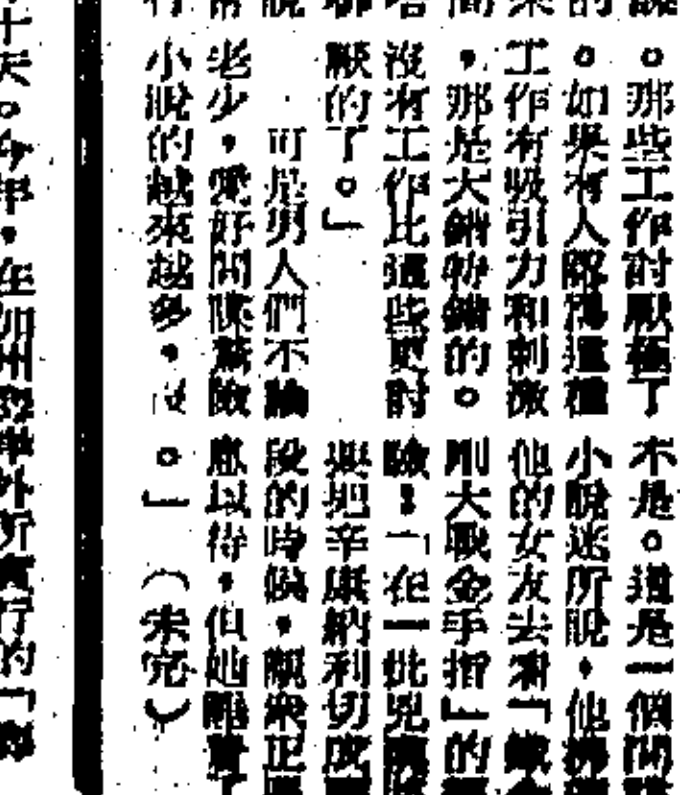 那些工作討厭極了
。如果有人認爲這種
工作有吸引力和刺激
,那是大錯特錯的。
沒有工作比這些更討
厭的了。」
可是男人們不論
老少,愛好間諜驚險
小說的越來越多,
不是。這是一個間諜
小說迷所說,他
他的女友去看「鐵金
剛大戰金手指」的
驗:「在一批兇
把辛康納利切成
段的時候,觀衆正
意以待,但她睡着了
。」(未完)
十天。今年,在加州 外所實行的「